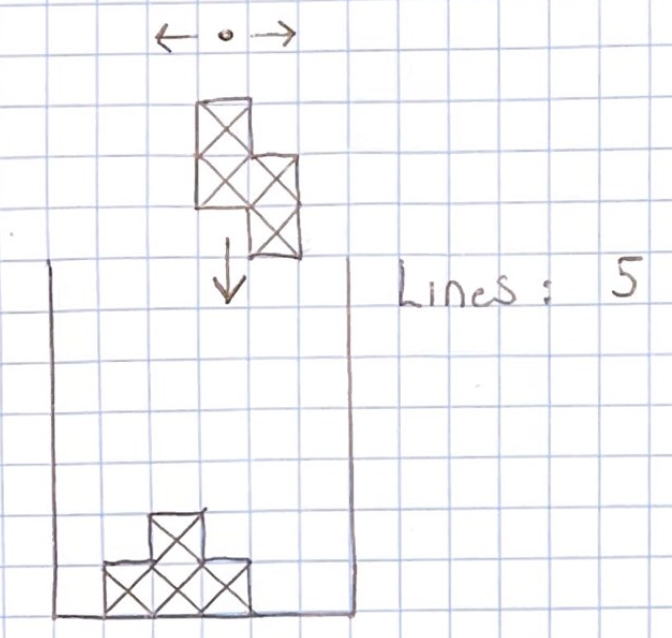 Lines: 5